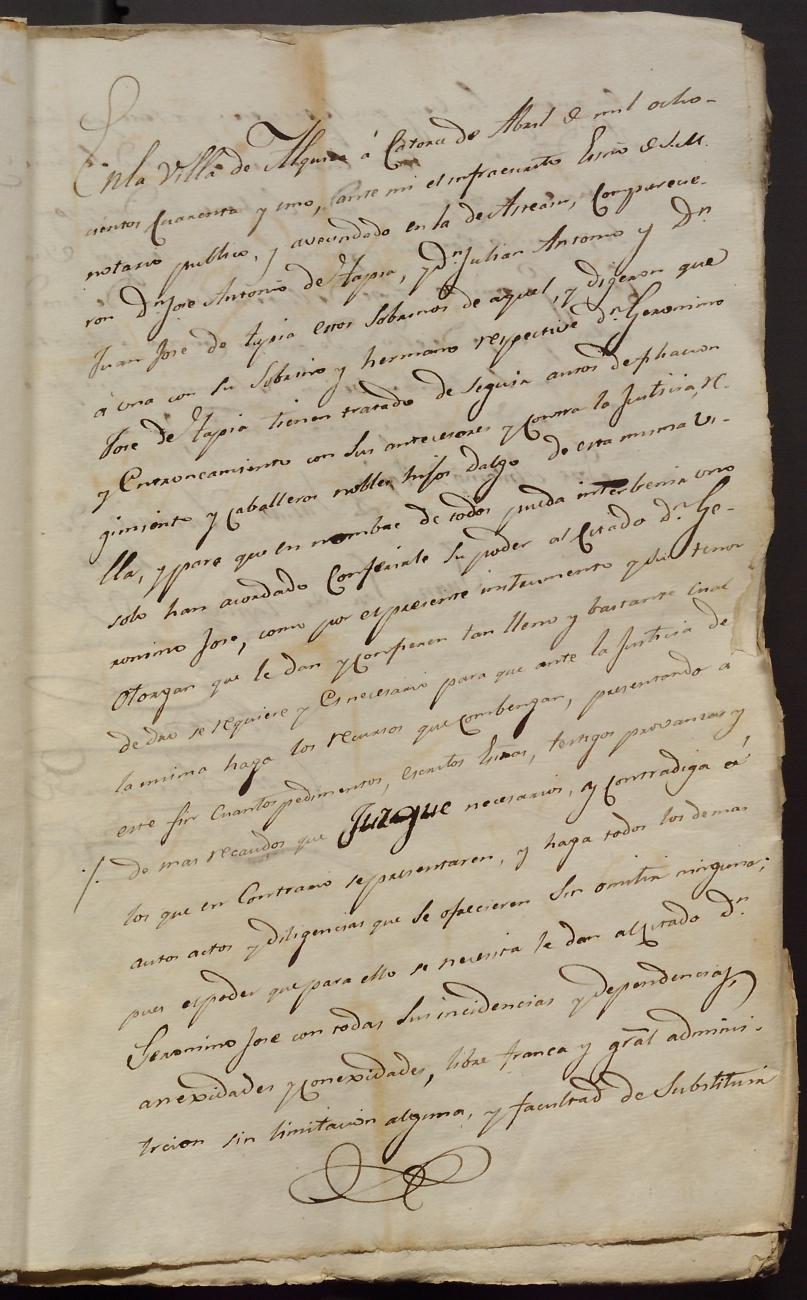 En la Villa de Alquiza á Catorce de Abril de mil ocho-
cientos Cuarenta y uno, ante mi el infraescrito Esno de S.M.
notario publico, y avecindado en la de Asteasu, Comparecie-
ron Dn Jose Antonio de Tapia, y Dn Julian Antonio y Dn
Juan Jose de tapia estos Sobrinos de aquel, y digeron que
á una con su Sobrino y hermano respective Dn Geronimo
Jose de Tapia tienen tratado de seguir autos de filiacion
y Entroncamiento con sus antecesores y Contra la Justicia, re-
gimiento y Caballeros nobles hijos dalgo de esta misma Vi-
lla, y para que en nombre de todos pueda interbenir uno
solo han acordado Conferirle su poder al Citado Dn Ge-
ronimo Jose, como por el presente instrumento y su tenor
Otorgan que le dan y confieren tan lleno y bastante cual
de dro se requiere y es necesario para que ante la Justicia de
la misma haga los recursos que Combengan, presentando a
este fin Cuantos pedimentos, escritos Esras, testigos provanzas y
/. de mas recaudos que Juzgue necesarios, y Contradiga á
los que en Contrario se presentaren, y haga todos los demas
autos actos y diligencias que se ofrecieren sin omitir ninguna;
pues el poder que para ello se necesita le dan al Citado Dn
Geronimo Jose con todas sus incidencias y dependencias,
anexidades y conexidades, libre franca y gral adminis-
trcion sin limitacion alguna, y facultad de Substituir